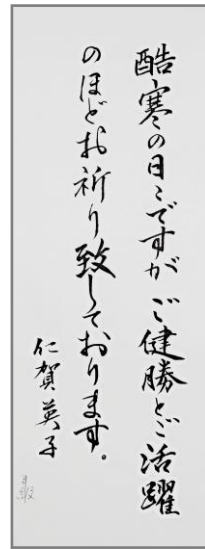 酷寒の日々ですがご健勝とご活躍
のほどお祈り致しております。
仁賀英子